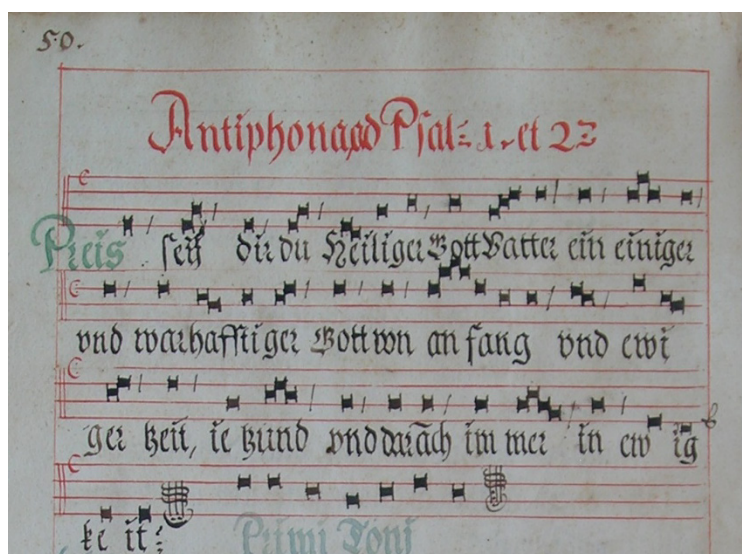 50.
Antiphona ad Psal: 1. et 2:
Preis seÿ dir du Heiliger Gott Vatter ein einiger
vnd warhafftiger Gott von an fang vnd ewi
ger Zeit, ie tzund vnd darnach im mer in ew ig
ke it:
Primi Toni